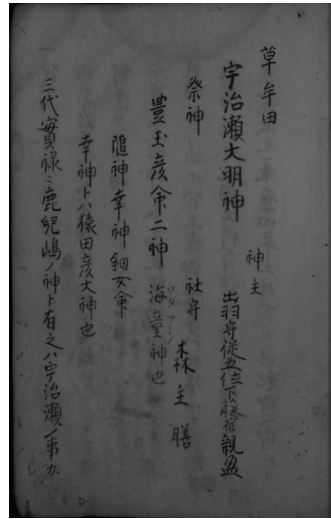 草牟田
宇治瀬大明神
神主 出羽守従五位下藤原親盈
祭神 社守 森主膳
豊玉彦命二神 海童神也 ワタツミノ
随神幸神鈿女命
幸神トハ猿田彦大神也
三代實録ニ鹿児嶋ノ神ト有之ハ宇治瀬ノ事カ